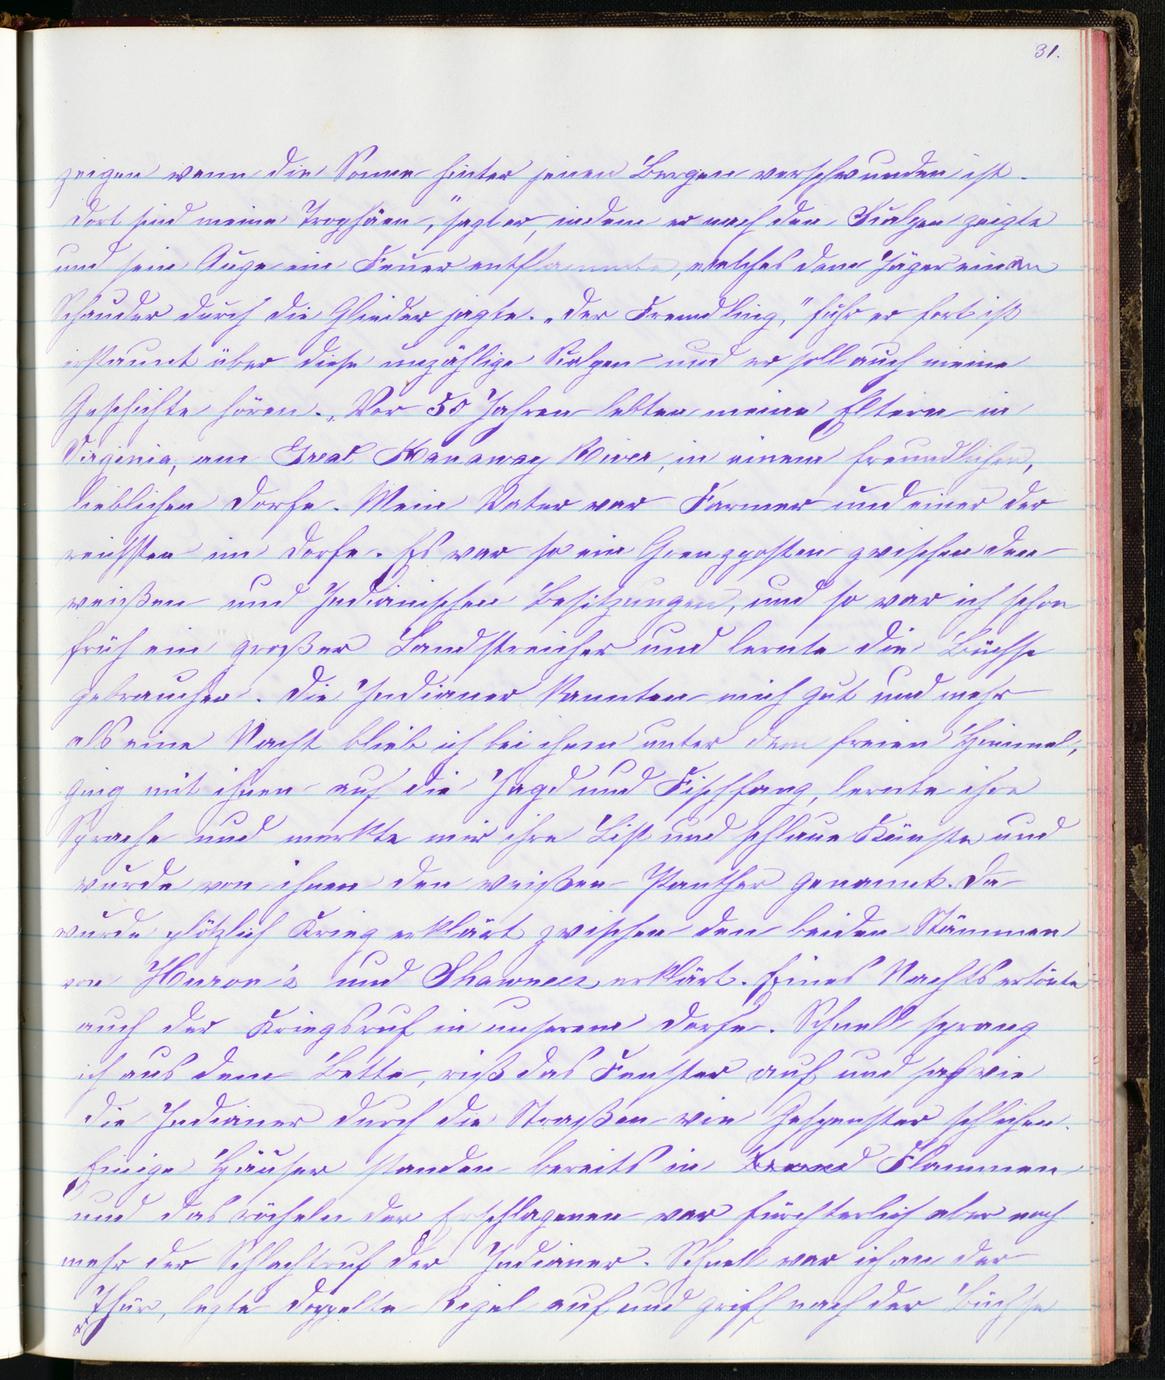 31.
zeigen wenn die Sonne hinter jenen Bergen verschwunden ist.
Dort sind meine Trophäen," sagt er, indem er nach den Skalpen zeigte
und sein Auge ein Feuer entflammte, welches dem Jäger einen
Schauder durch die Glieder jagte. „Der Fremdling," fuhr er fort ist
erstaunt über diese unzählige Skalpen und er soll auch meine
Geschichte hören. „Vor 50 Jahren lebten meine Eltern in
Virginia, am Great Kanaway River, in einem freundlichen,
lieblichen Dorfe. Mein Vater war Farmer und einer der
reichsten im Dorfe. Es war so ein Grenzposten zwischen den
weißen und Indianischen Besitzungen, und so war ich schon
früh ein großer Landstreicher und lernte die Büchse
gebrauchen. Die Indianer kannten mich gut und mehr
als eine Nacht blieb ich bei ihnen unter dem freien Himmel,
ging mit ihnen auf die Jagd und Fischfang, lernte ihre
Sprache und merkte mir ihre List und schlaue Künste und
wurde von ihnen den weißen Panther genannt. Da
wurde plötzlich Krieg erklärt zwischen den beiden Stämmen
von Huron's und Shawnees erklärt. Eines Nachts ertönte
auch der Kriegsruf in unserem Dorfe. Schnell sprang
ich aus dem Bette, riß das Fenster auf und sah wie
die Indianer durch die Straßen wie Gespenster schlichen.
Einige Häuser standen bereits in Brand Flammen
und das röcheln der Erschlagenen war fürchterlich aber noch
mehr der Schlachtruf der Indianer. Schnell war ich an der
Thür, legte doppelte Rigel auf und griff nach der Büchse